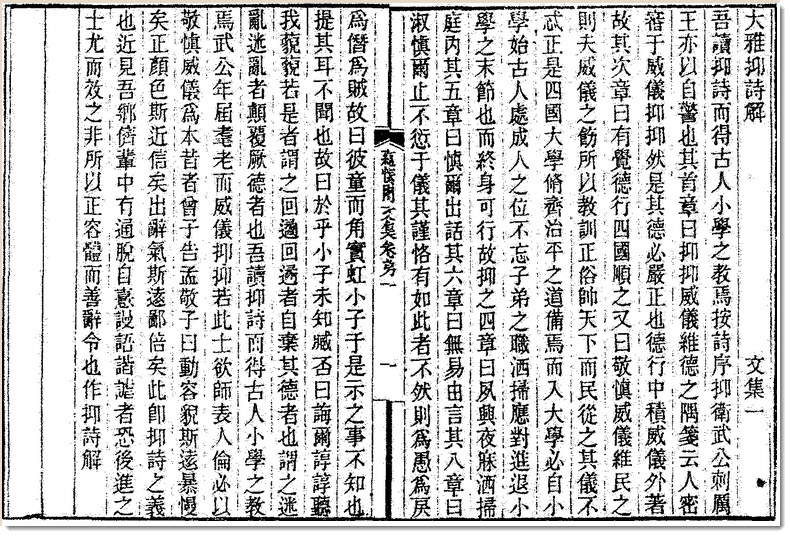 大雅抑詩解 文集一
吾讀抑詩而得古人小學之敎焉按詩序抑衛武公刺厲
王亦以自警也其首章曰抑抑威儀維德之隅箋云人密
審于威儀抑抑然是其德必嚴正也德行中積威儀外著
故其次章曰有覺德行四國順之又曰敬愼威儀維民之
則夫威儀之飭所以敎訓正俗帥天下而民從之其儀不
忒正是四國大學脩齊治平之道備焉而入大學必自小
學始古人處成人之位不忘子弟之職洒掃應對進退小
學之末節也而終身可行故抑之四章曰夙興夜寐洒掃
庭內其五章曰愼爾出話其六章曰無易由言其八章曰
淑愼爾止不愆于儀其謹恪有如此者不然則爲愚爲戾
蘊愫閣文集卷第一 一
爲僭爲賊故曰彼童而角實虹小子于是示之事不知也
提其耳不聞也故曰於乎小子未知臧否曰誨爾諄諄聽
我藐藐若是者謂之回遹回遹者自棄其德者也謂之迷
亂迷亂者顛覆厥德者也吾讀抑詩而得古人小學之敎
焉武公年屆耄老而威儀抑抑若此士欲師表人倫必以
敬愼威儀爲本昔者曾子告孟敬子曰動容貌斯遠暴慢
矣正顏色斯近信矣出辭氣斯遠鄙倍矣此卽抑詩之義
也近見吾鄉儕輩中有通脫自憙謾詒諧謔者恐後進之
士尤而效之非所以正容體而善辭令也作抑詩解